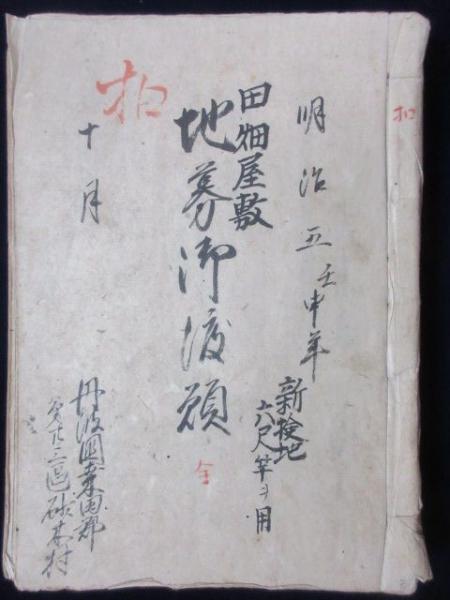 扣
明治五壬申年
新検地
六尺竿ヲ用
田畑屋敷
地券御渡願
全
十月
扣
丹波國桑田郡
第廿三區 村